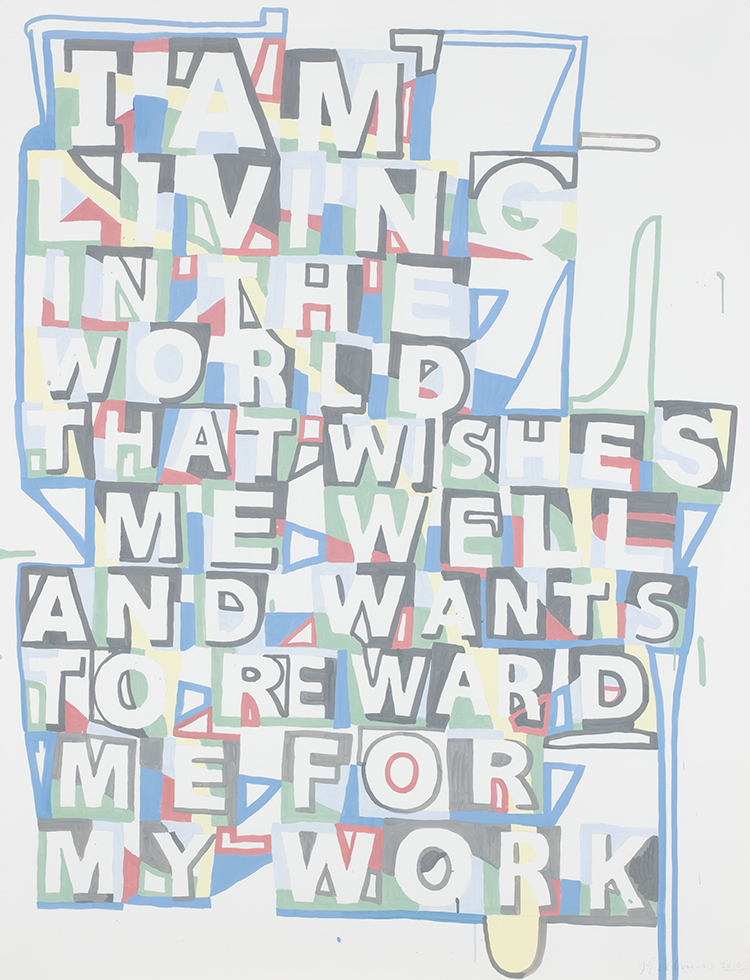 I AM
LIVING
IN THE
WORLD
THAT WISHES
ME WELL
AND WANTS
TO REWARD
ME FOR
MY WORK